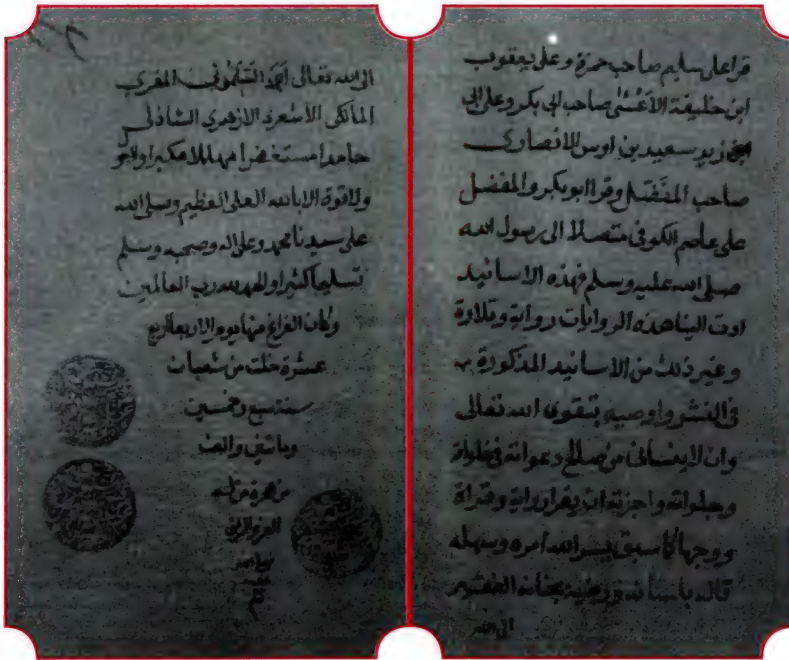 قراعلى سليم صاحب حمزة وعلى يعقوب
ابن خليفة الاعشى صاحب ابى بكر وعلى ابى
زيد سعيد بن اوس الانصارى
صاحب المفضل وقرا ابو بكر والمفضل
على عاصم الكوفى متصلا الى رسول الله
صلى الله عليه وسلم فهذه الاسانيد
ادت الينا هذه الروايات رواية وتلاوة
وغير ذلك من الاسانيد المذكورة
فى النشر واوصيه بتقوى الله تعالى
وان لا ينسانى من صالح دعواته فى خلواته
وجلواته واجزته ان يقرا رواية وقراة
ووجها كما سبق يسر الله امره وسهله
قاله بلسانه ورضيه بجنانه الفقير
الى الله
الى الله تعالى احمد المقرى
المالكى الاشعرى الازهرى الشاذلى
حامدا مستغفرا مهللا مكبرا ولاحو
ولاقوة الابالله العلى العظيم وصلى الله
على سيدنا محمد وعلى اله وصحبه وسلم
تسليما كثيرا والحمد لله رب العالمين
وكان الفراغ منها يوم الاربعا اربع
عشرة خلت من شعبان
سنة سبع وخمسين
وماتين والف
من هجرة من له
العز والشرف
تم